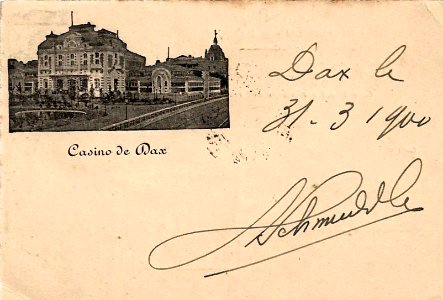 Casino de Dax
Dax le
31-3 1900